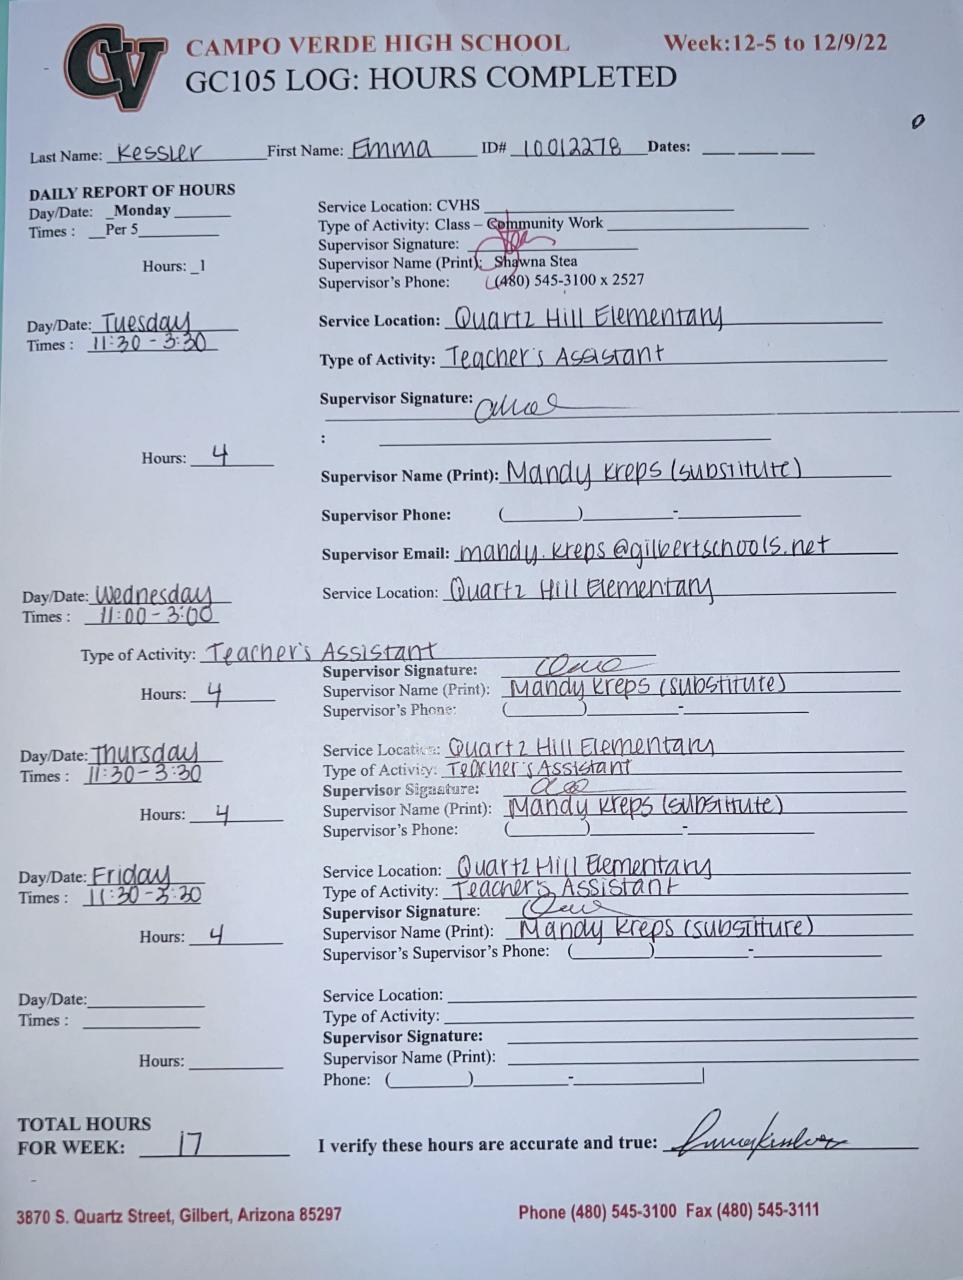 CV CAMPO VERDE HIGH SCHOOL Week:12-5 to 12/9/22
GC105 LOG: HOURS COMPLETED
Last Name: Kessler First Name: Emma ID# 10012278 Dates: ___ ___ ___
DAILY REPORT OF HOURS
Day/Date: _Monday
Times : Per 5
Hours: _1
Service Location: CVHS
Type of Activity: Class – Community Work
Supervisor Signature:
Supervisor Name (Print): Shawna Stea
Supervisor's Phone: (480) 545-3100 x 2527
Day/Date: Tuesday
Times : 11:30 - 3:30
Hours: 4
Service Location: Quartz Hill Elementary
Type of Activity: Teacher's Assistant
Supervisor Signature:
:
Supervisor Name (Print): Mandy Kreps (substitute)
Supervisor Phone: ( ) -
Supervisor Email: mandy.kreps@gilbertschools.net
Day/Date: Wednesday
Times : 11:00 - 3:00
Service Location: Quartz Hill Elementary
Type of Activity: Teacher's Assistant
Hours: 4
Supervisor Signature:
Supervisor Name (Print): Mandy Kreps (substitute)
Supervisor's Phone: ( ) -
Day/Date: Thursday
Times : 11:30 - 3:30
Hours: 4
Service Location: Quartz Hill Elementary
Type of Activity: Teacher's Assistant
Supervisor Signature:
Supervisor Name (Print): Mandy Kreps (substitute)
Supervisor's Phone: ( ) -
Day/Date: Friday
Times : 11:30 - 3:30
Hours: 4
Service Location: Quartz Hill Elementary
Type of Activity: Teacher's Assistant
Supervisor Signature:
Supervisor Name (Print): Mandy Kreps (substitute)
Supervisor's Supervisor's Phone: ( ) -
Day/Date:
Times :
Hours:
Service Location:
Type of Activity:
Supervisor Signature:
Supervisor Name (Print):
Phone: ( ) -
TOTAL HOURS
FOR WEEK: 17
I verify these hours are accurate and true:
3870 S. Quartz Street, Gilbert, Arizona 85297 Phone (480) 545-3100 Fax (480) 545-3111